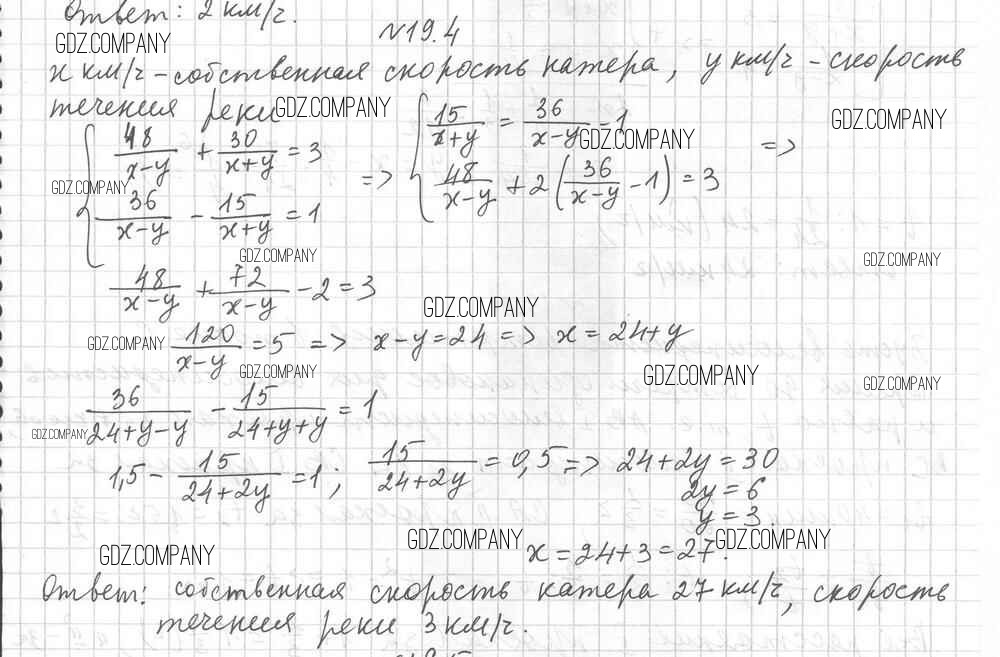 Ответ: 2 км/ч.
№19.4
GDZ.COMPANY
x км/ч - собственная скорость катера, y км/ч - скорость
течения реки GDZ.COMPANY
GDZ.COMPANY
48/(x-y) + 30/(x+y) = 3 => 15/(x+y) = 36/(x-y) - 1 =>
GDZ.COMPANY
GDZ.COMPANY
36/(x-y) - 15/(x+y) = 1 48/(x-y) + 2(36/(x-y) - 1) = 3
GDZ.COMPANY
GDZ.COMPANY
48/(x-y) + 72/(x-y) - 2 = 3
GDZ.COMPANY
GDZ.COMPANY 120/(x-y) = 5 => x-y = 24 => x = 24+y
GDZ.COMPANY GDZ.COMPANY GDZ.COMPANY
36/(24+y-y) - 15/(24+y+y) = 1
GDZ.COMPANY
1,5 - 15/(24+2y) = 1; 15/(24+2y) = 0,5 => 24+2y = 30
2y = 6
y = 3.
GDZ.COMPANY GDZ.COMPANY GDZ.COMPANY
x = 24+3 = 27.
Ответ: собственная скорость катера 27 км/ч, скорость
течения реки 3 км/ч.